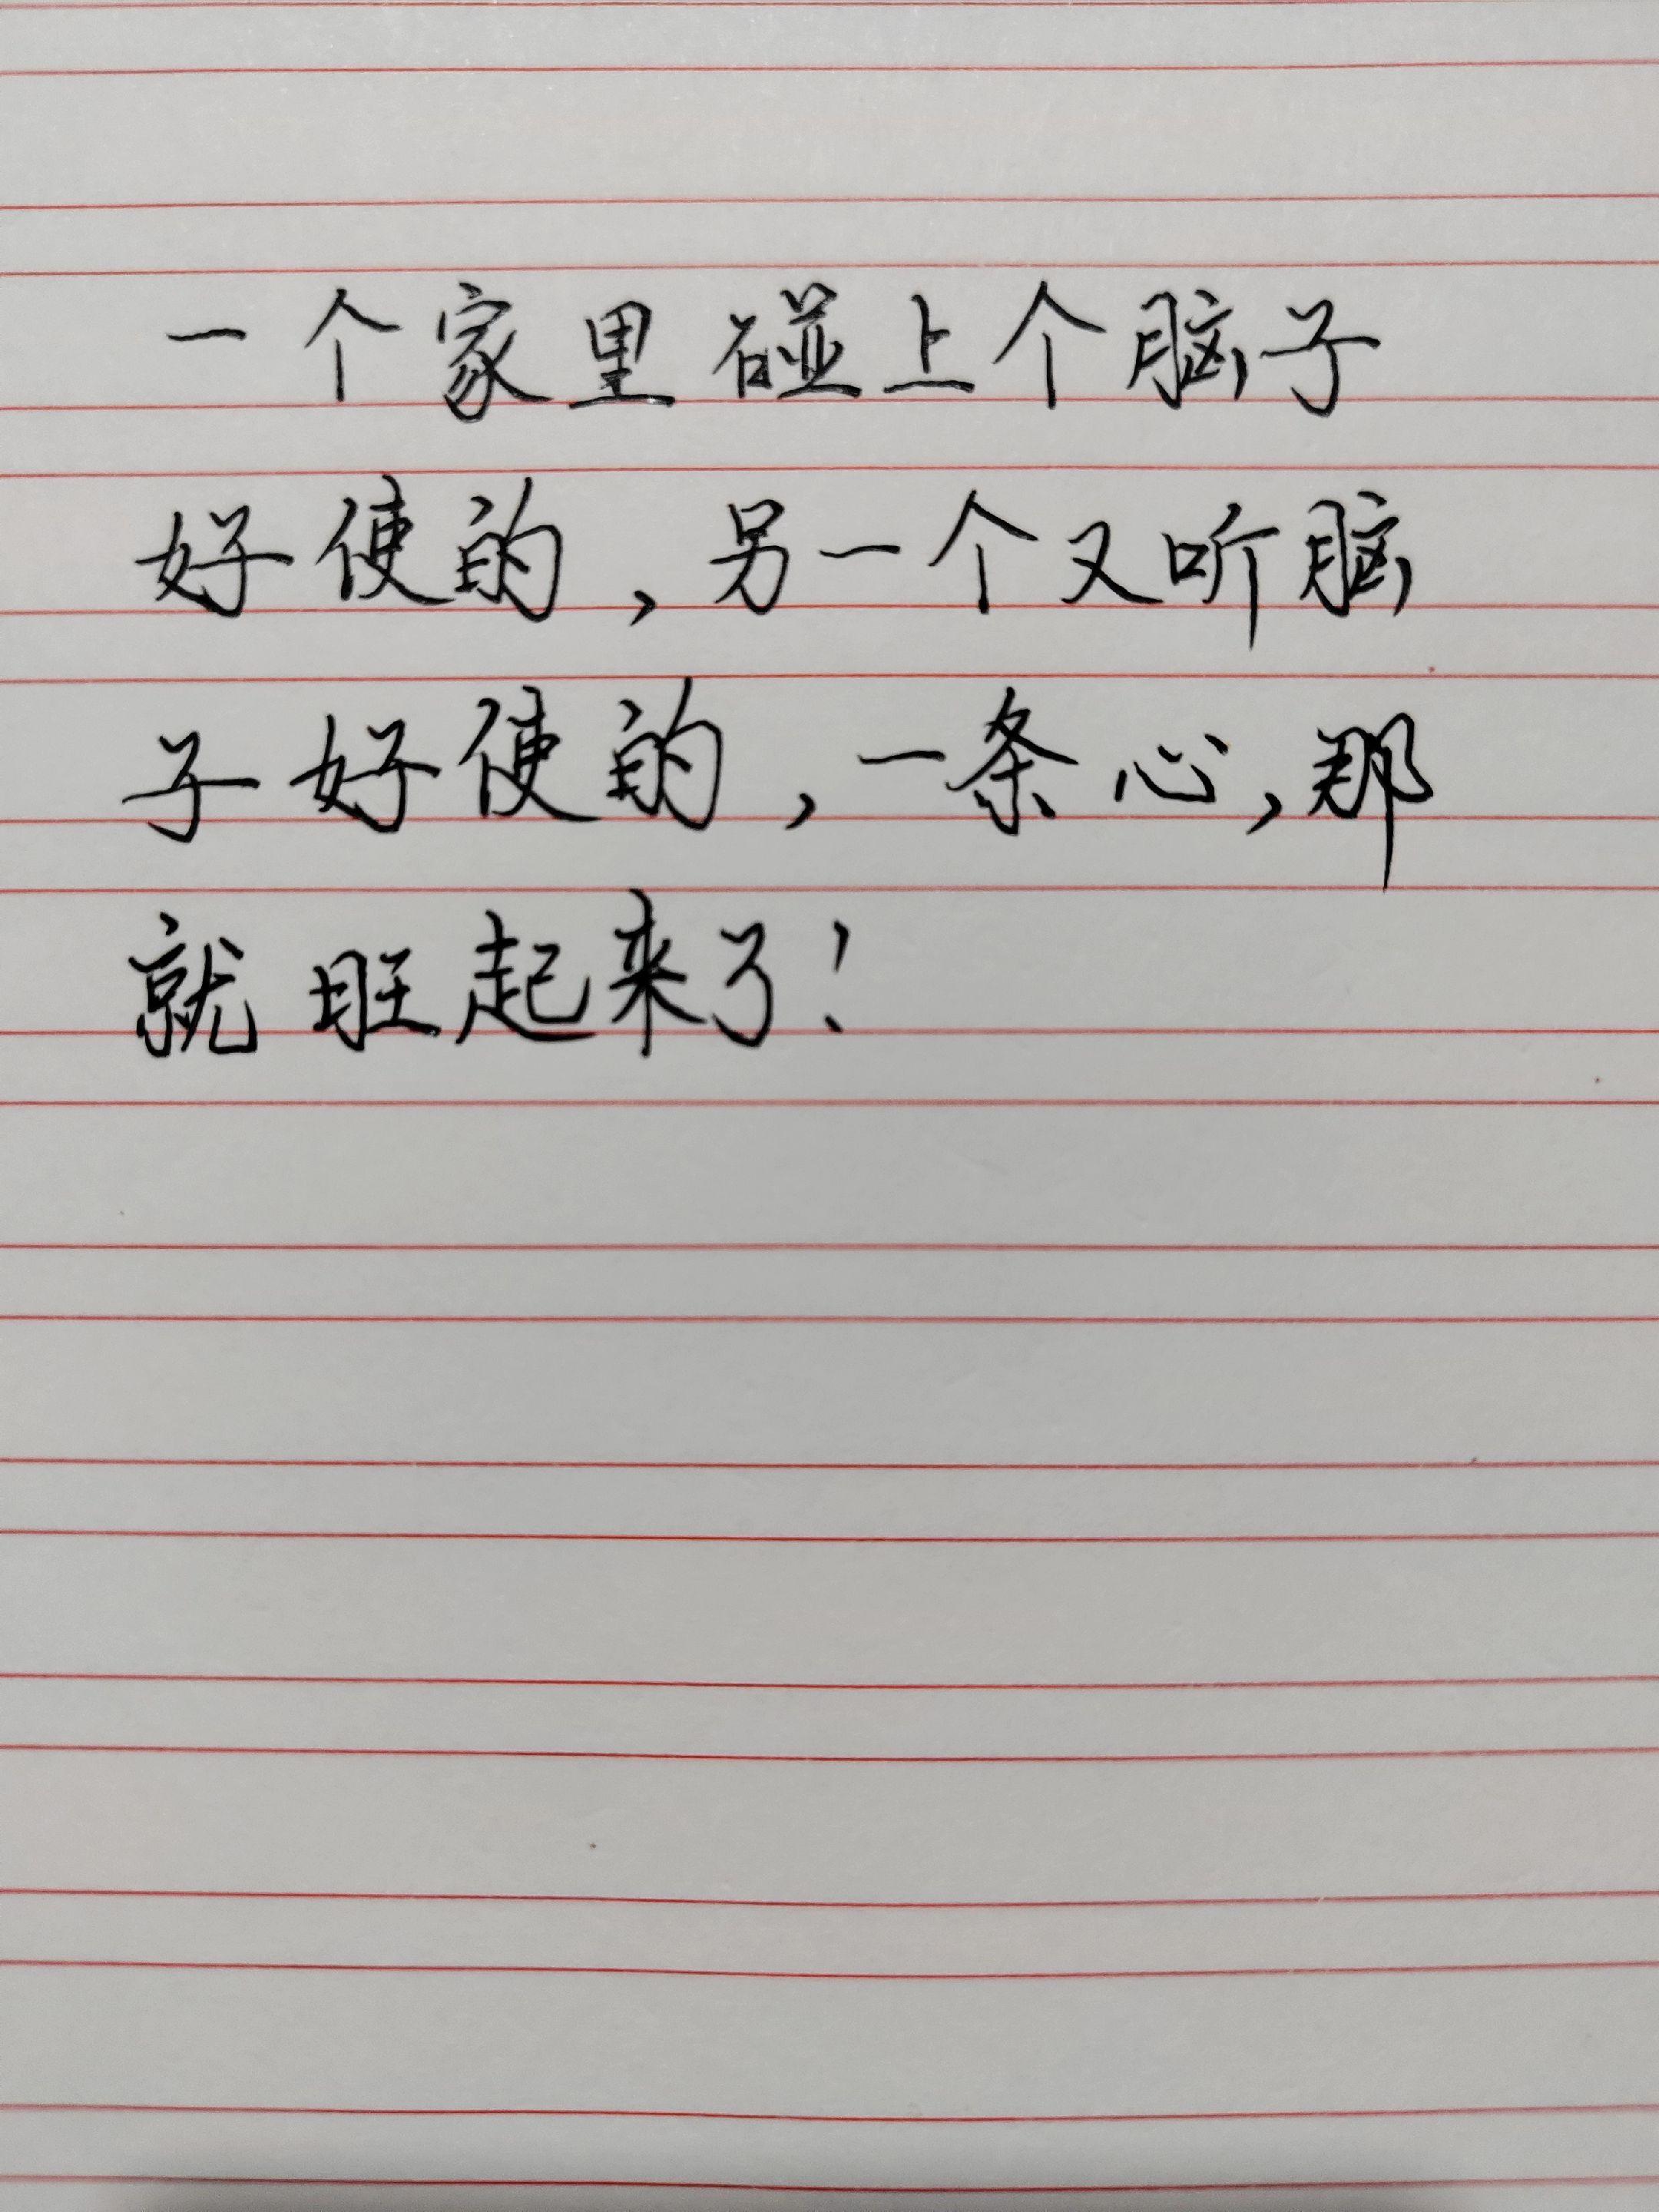 一个家里碰上个脑子
好使的,另一个又听脑
子好使的,一条心,那
就旺起来了!